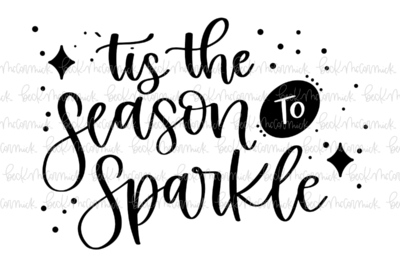 tis the
Season To
Sparkle